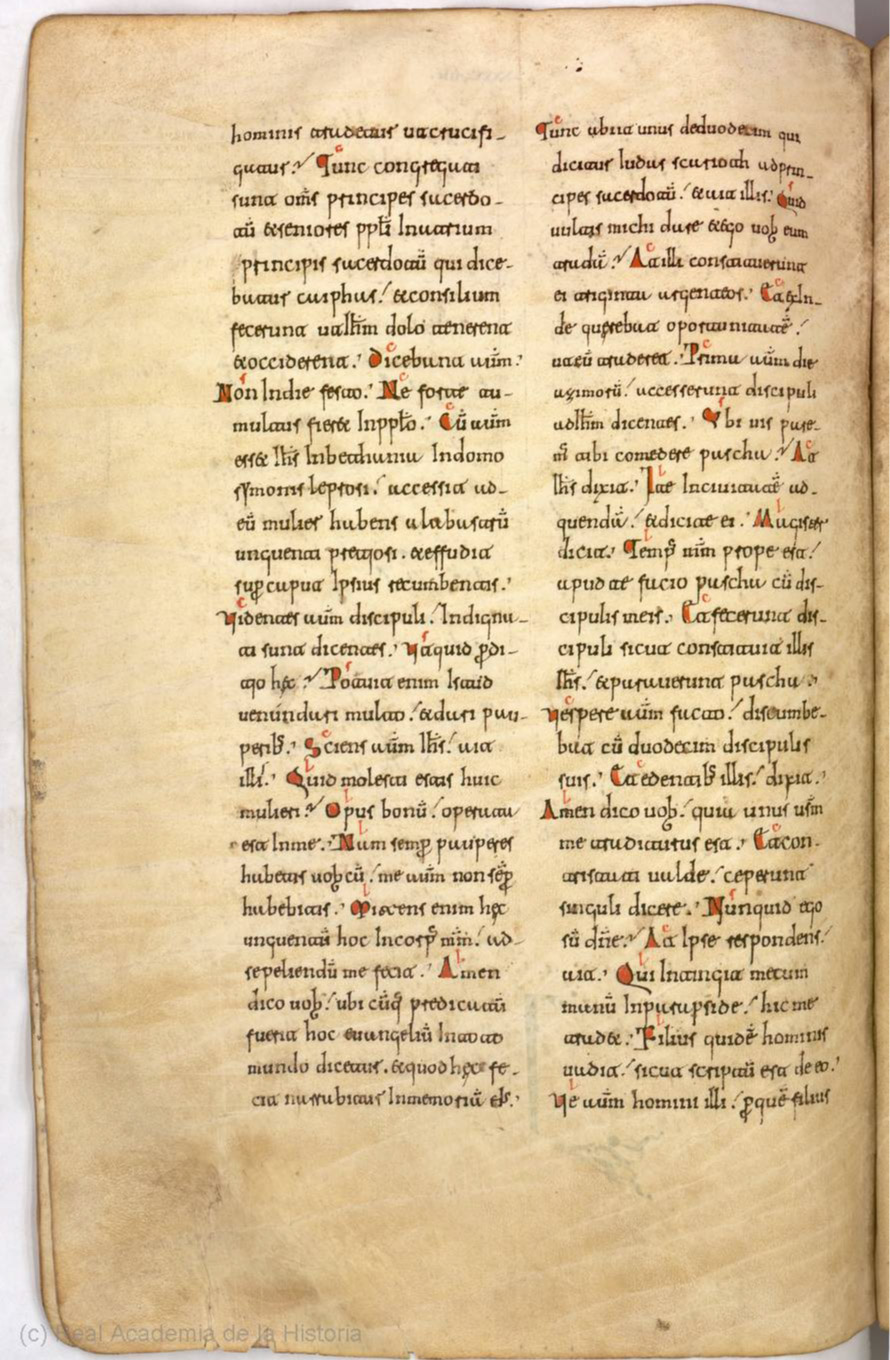 hominis tradetur ut crucifi-
gatur. Tunc congregati
sunt om̄s principes sacerdo-
tū et seniores ppl̄i In atrium
principis sacerdotū qui dice-
batur caiphas. et consilium
fecerunt ut Ih̄m dolo tenerent
et occiderent. Dicebant aūm.
Non In die festo. Ne forte tu-
multus fieret In ppl̄o. Cū aūm
esset Ih̄s In bethania In domo
symonis leprosi. accessit ad-
eū mulier habens alabastrū
unguenti pretiosi. et effudit
sup̱ caput Ipsius recumbentis.
Videntes aūm discipuli. Indigna-
ti sunt dicentes. Ut quid p̱di-
tio hęc. Potuit enim Istud
venundari multo. et dari pau-
perib. Sciens aūm Ih̄s. ait
illi. Quid molesti estis huic
mulieri. Opus bonū operata
est In me. Nam semp̱ pauperes
habetis vob̄cū. me aūm non semp̱
habebitis. Mittens enim hęc
unguentū hoc In corpꝰ m̄m. ad-
sepeliendū me fecit. Amen
dico vob̄. ubi cūq̄ predicatū
fuerit hoc evangeliū In toto
mundo dicetur. et quod hęc fe-
cit narrabitur In memoriā eꝰ.
Tunc abiit unus de duodecim qui
dicitur Iudas scarioth ad prin-
cipes sacerdotū. et ait illis. Quid
vultis michi dare et ego vob̄ eum
tradā. At illi constituerunt
ei triginta argenteos. Et exIn-
de querebat oportunitatē.
ut eū traderet. Prima aūm die
azimorū. accesserunt discipuli
ad Ih̄m dicentes. Ubi vis pare-
m̄ tibi comedere pascha. At
Ih̄s dixit. Ite In civitatē ad-
quendā. et dicite ei. Magister
dicit. Tempꝰ m̄m prope est.
apud te facio pascha cū dis-
cipulis meis. Et fecerunt dis-
cipuli sicut constituit illis
Ih̄s. et paraverunt pascha.
Vespere aūm facto. discumbe-
bat cū duodecim discipulis
suis. Et edentib illis. dixit.
Amen dico vob̄. quia unus vs̄m
me traditurus est. Et con-
tristati valde. ceperunt
singuli dicere. Nunquid ego
sū dn̄e. At Ipse respondens.
ait. Qui Intingit mecum
manū In parapside. hic me
tradet. Filius quidē hominis
vadit. sicut scriptū est de eo.
Ve aūm homini illi. p̱ quē filius